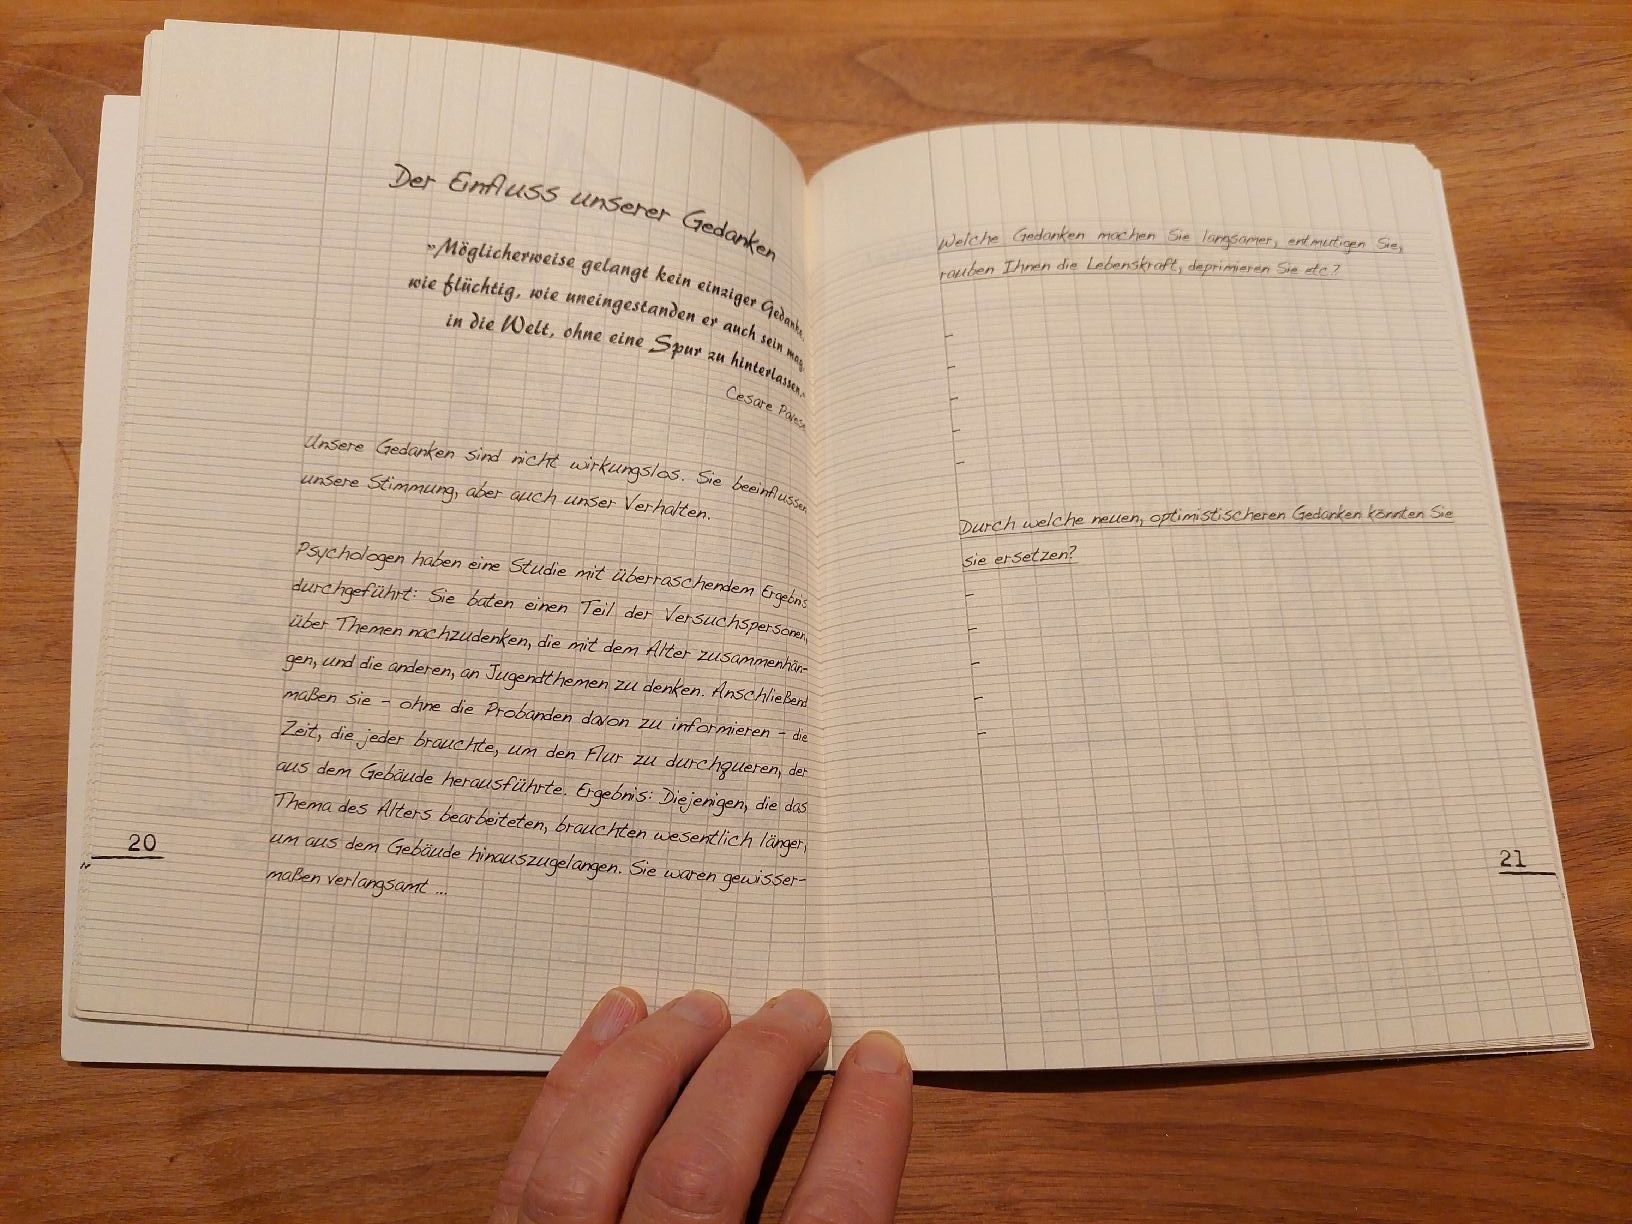 Der Einfluss unserer Gedanken
»Möglicherweise gelangt kein einziger Gedanke,
wie flüchtig, wie uneingestanden er auch sein mag,
in die Welt, ohne eine Spur zu hinterlassen.«
Cesare Pavese
Unsere Gedanken sind nicht wirkungslos. Sie beeinflussen
unsere Stimmung, aber auch unser Verhalten.
Psychologen haben eine Studie mit überraschendem Ergebnis
durchgeführt: Sie baten einen Teil der Versuchspersonen,
über Themen nachzudenken, die mit dem Alter zusammenhän-
gen, und die anderen, an Jugendthemen zu denken. Anschließend
maßen sie – ohne die Probanden davon zu informieren – die
Zeit, die jeder brauchte, um den Flur zu durchqueren, der
aus dem Gebäude herausführte. Ergebnis: Diejenigen, die das
Thema des Alters bearbeiteten, brauchten wesentlich länger,
um aus dem Gebäude hinauszugelangen. Sie waren gewisser-
maßen verlangsamt ...
20
Welche Gedanken machen Sie langsamer, entmutigen Sie,
rauben Ihnen die Lebenskraft, deprimieren Sie etc.?
–
–
–
–
–
Durch welche neuen, optimistischeren Gedanken könnten Sie
sie ersetzen?
–
–
–
–
–
21